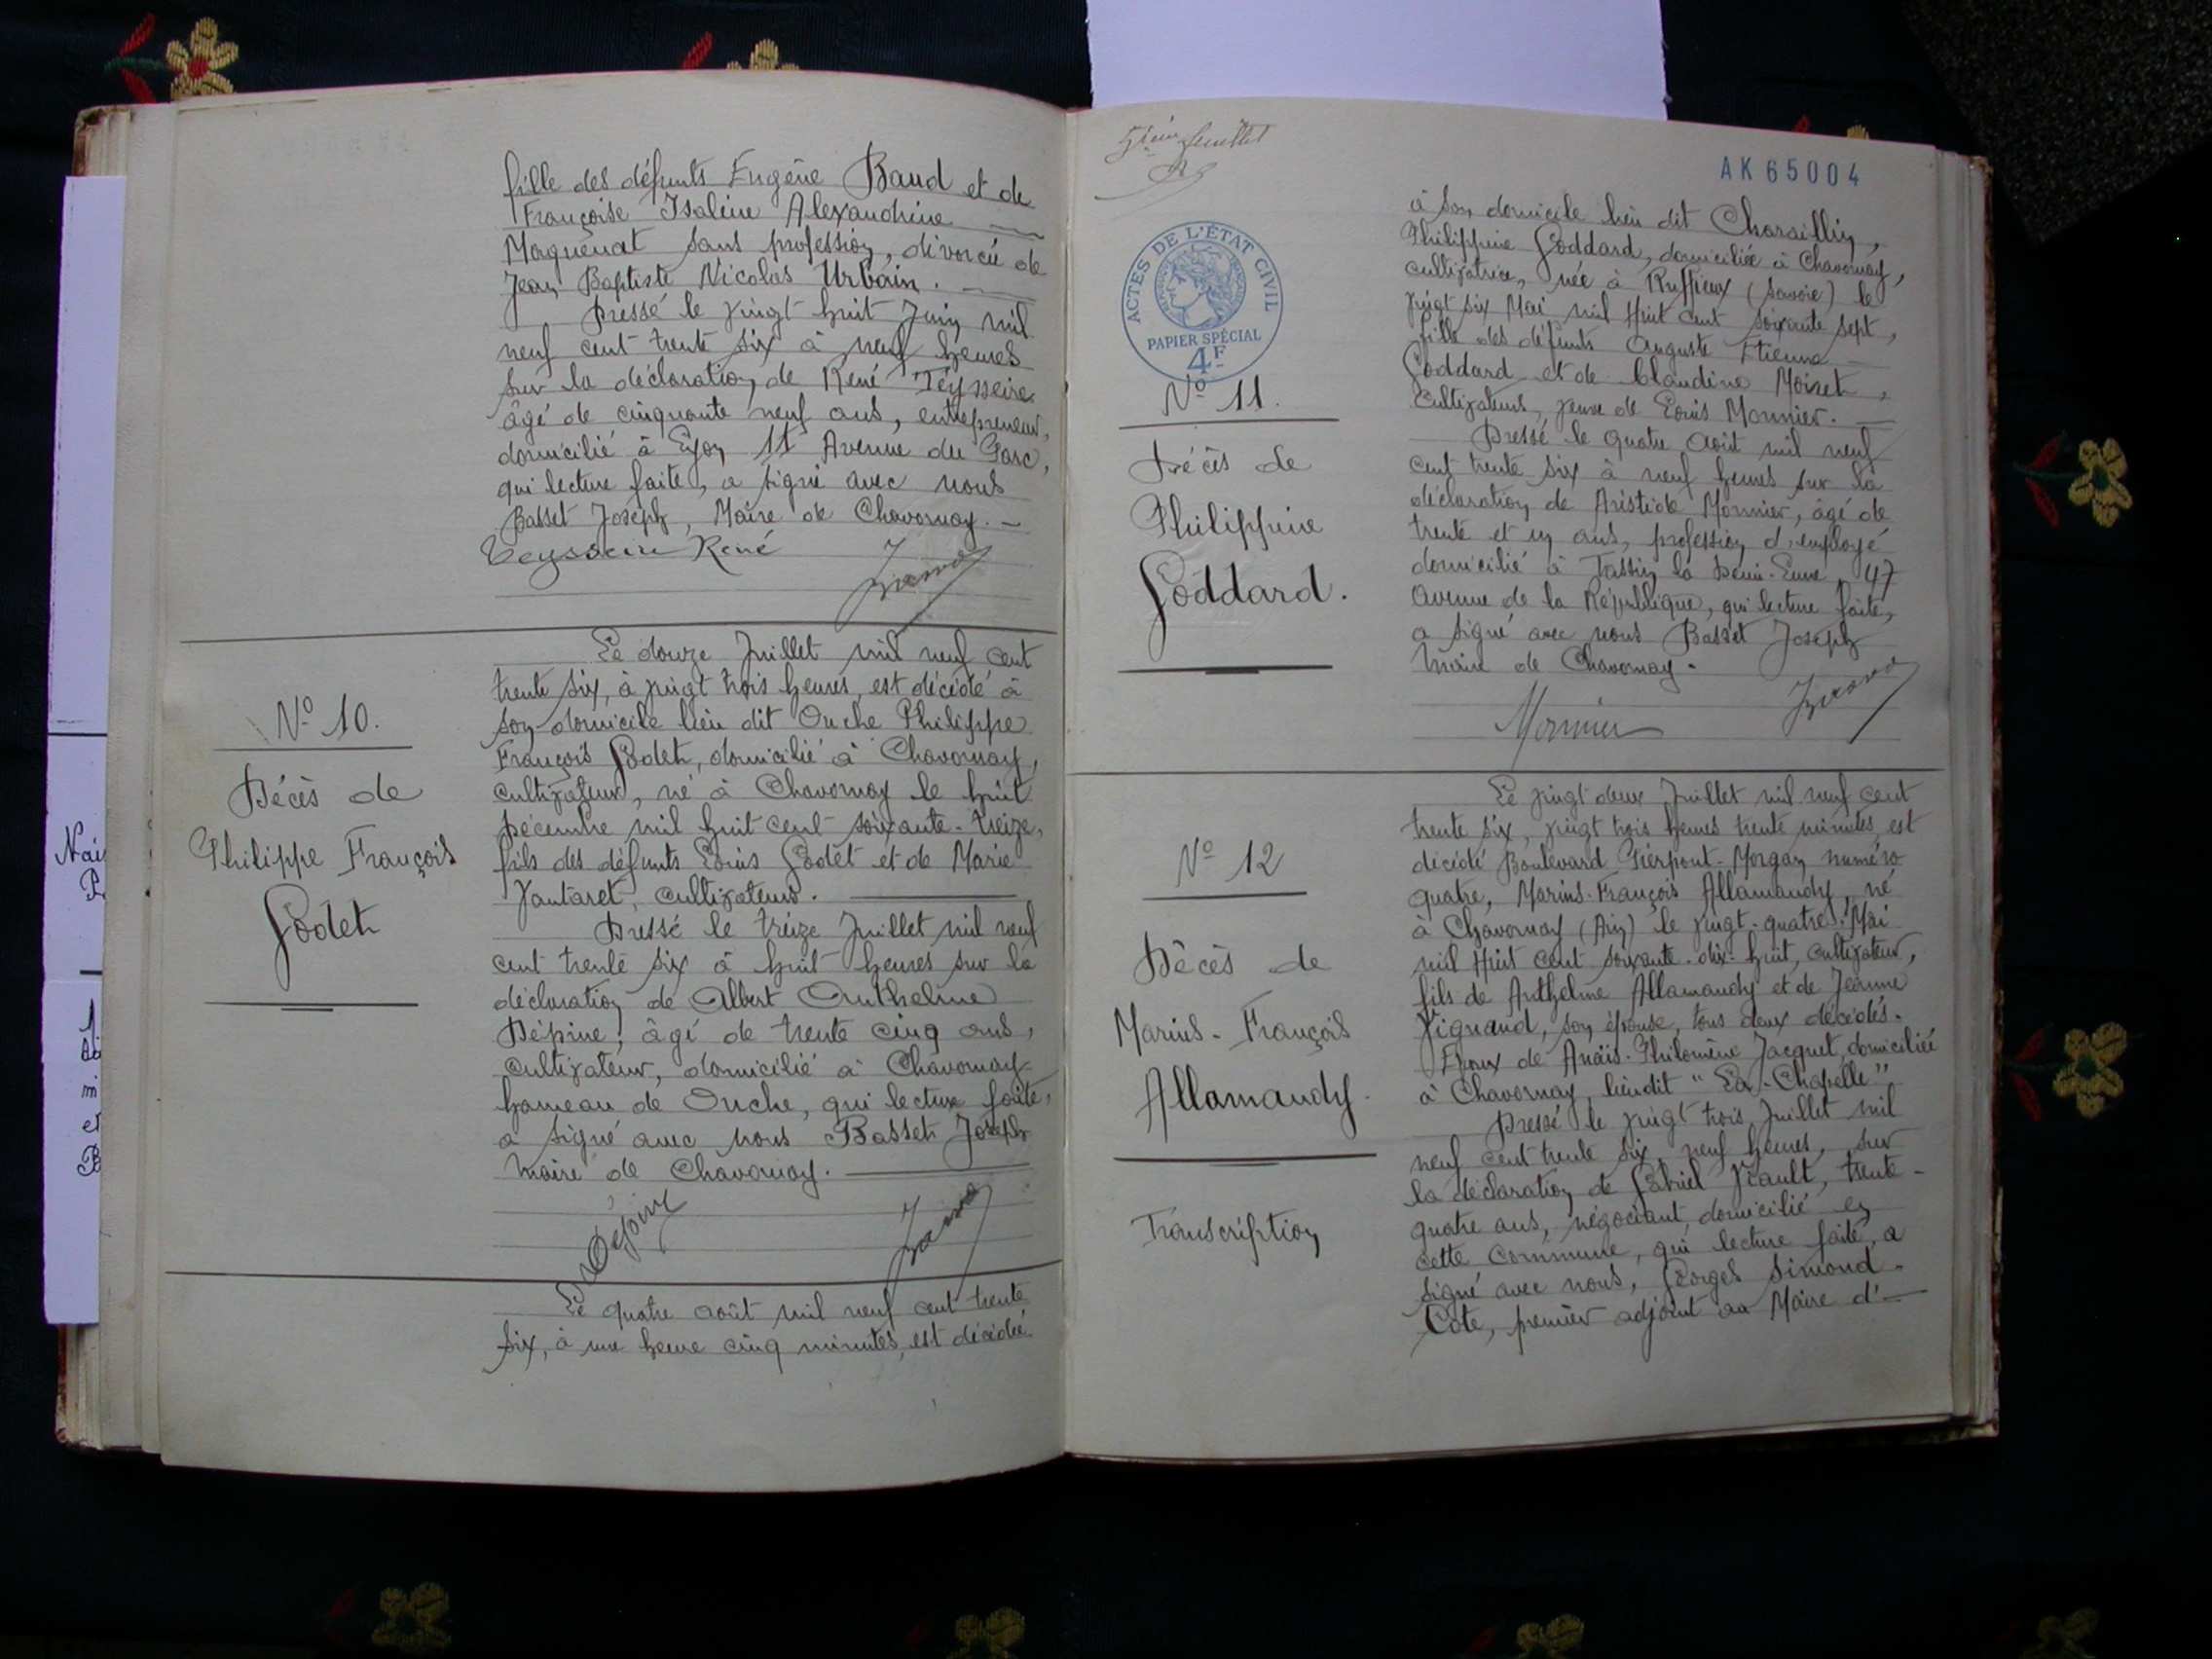 fille des défunts Eugène Baud et de
Françoise Isaline Alexandrine
Maguenat sans profession, divorcée de
Jean Baptiste Nicolas Urbain.
Dressé le vingt huit Juin mil
neuf cent trente six à neuf heures
sur la déclaration de René Teysseire
âgé de cinquante neuf ans, entrepreneur,
domicilié à Lyon 11 Avenue du Parc,
qui lecture faite, a signé avec nous
Basset Joseph, Maire de Chavornay.
Teysseire René
Nº 10.
Décès de
Philippe François
Godet
Le douze Juillet mil neuf cent
trente six, à vingt trois heures, est décédé à
son domicile lieu dit Ouche Philippe
François Godet, domicilié à Chavornay,
cultivateur, né à Chavornay le huit
Décembre mil huit cent soixante-treize,
fils des défunts Louis Godet et de Marie
Vantaret, cultivateurs.
Dressé le treize Juillet mil neuf
cent trente six à huit heures sur la
déclaration de Albert Anthelme
Dépine, âgé de trente cinq ans,
cultivateur, domicilié à Chavornay
hameau de Ouche, qui lecture faite,
a signé avec nous Basset Joseph
Maire de Chavornay.
Le quatre août mil neuf cent trente
six, à une heure cinq minutes, est décédée
5ième feuillet
AK65004
ACTES DE L'ÉTAT CIVIL
PAPIER SPÉCIAL
4F
Nº 11.
Décès de
Philippine
Goddard.
à son domicile lieu dit Charaillin,
Philippine Goddard, domiciliée à Chavornay,
cultivatrice, née à Ruffieux (Savoie) le
vingt six Mai mil Huit cent soixante sept,
fille des défunts Auguste Etienne
Goddard et de Claudine Moiret,
Cultivateurs, veuve de Louis Monnier.
Dressé le quatre Août mil neuf
cent trente six à neuf heures sur la
déclaration de Aristide Monnier, âgé de
trente et un ans, profession d'employé
domicilié à Tassin la Demi-Lune, 47
Avenue de la République, qui lecture faite,
a signé avec nous Basset Joseph
Maire de Chavornay.
Monnier
Nº 12
Décès de
Marius-François
Allamandy.
Transcription
Le vingt deux Juillet mil neuf cent
trente six, vingt trois heures trente minutes, est
décédé Boulevard Pierpont-Morgan numéro
quatre, Marius-François Allamandy, né
à Chavornay (Ain) le vingt-quatre Mai
mil Huit cent soixante-dix-huit, cultivateur,
fils de Anthelme Allamandy et de Jeanne
Vignand, son épouse, tous deux décédés.
Epoux de Anaïs-Philomène Jacquet, domiciliée
à Chavornay, lieudit "La-Chapelle"
Dressé le vingt trois Juillet mil
neuf cent trente six, neuf heures, sur
la déclaration de Gabriel Viault, trente-
quatre ans, négociant, domicilié en
cette Commune, qui lecture faite, a
signé avec nous, Georges Simond-
Cote, premier adjoint au Maire d'